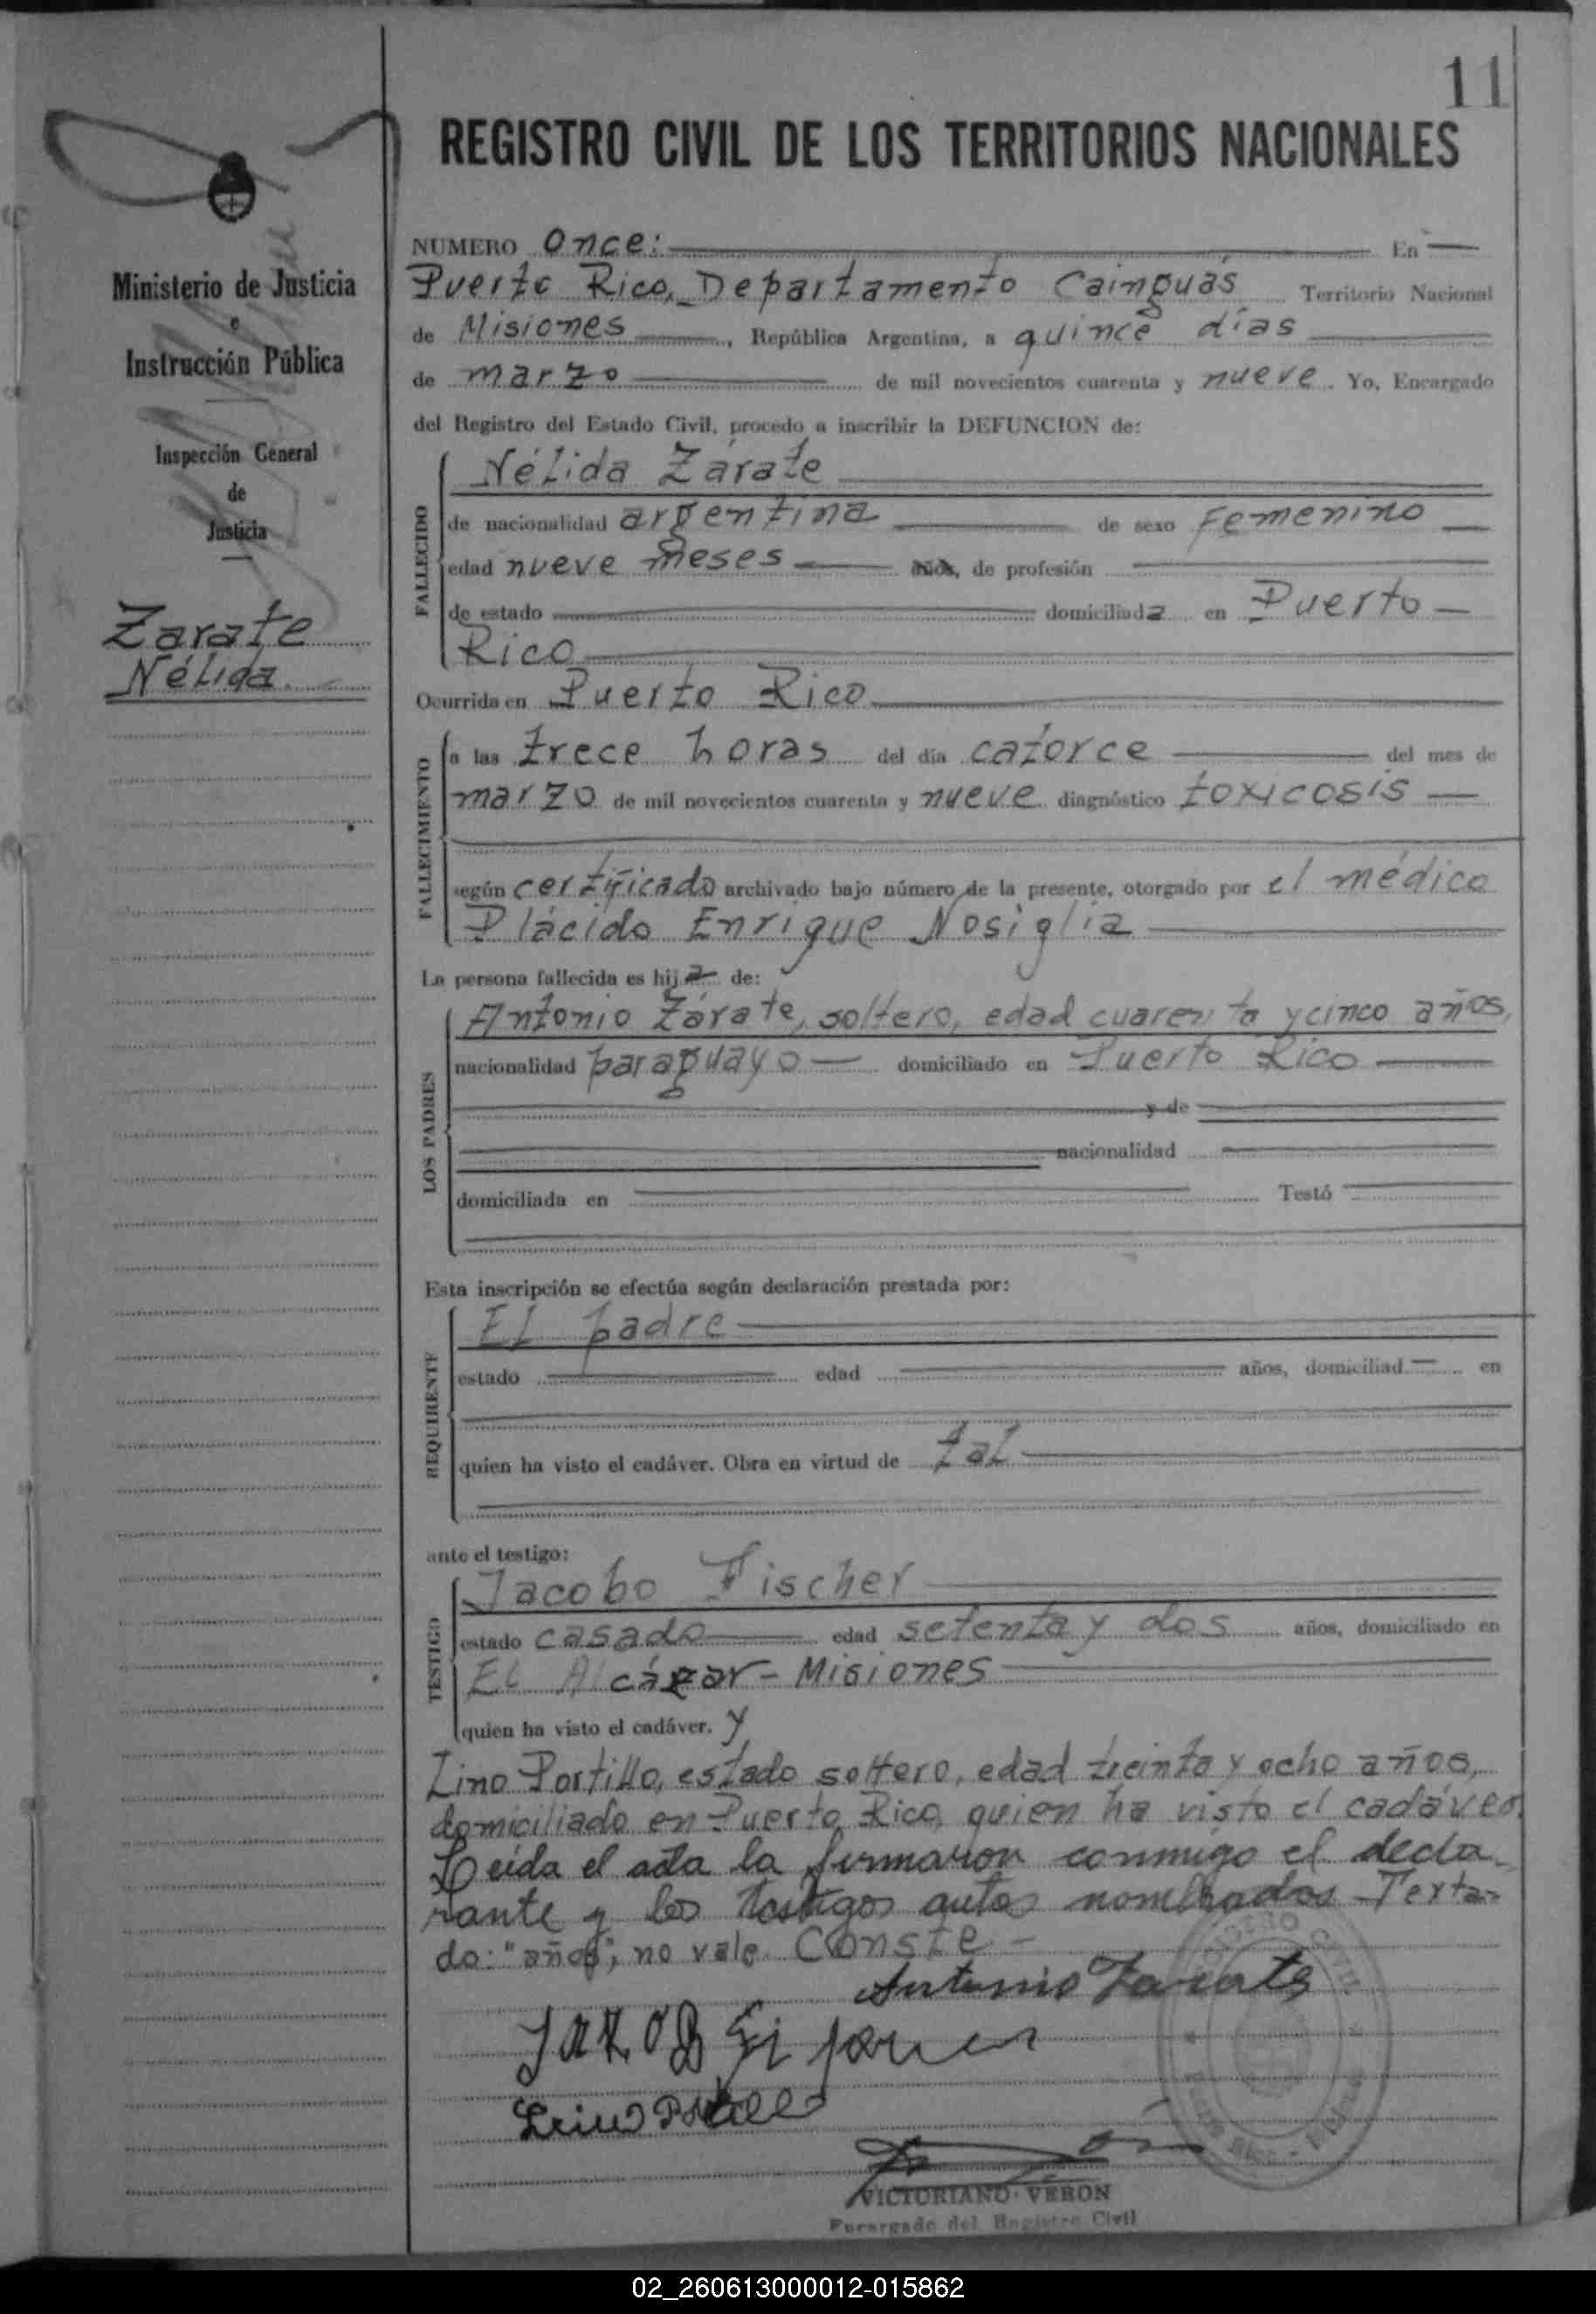 11
REGISTRO CIVIL DE LOS TERRITORIOS NACIONALES
Ministerio de Justicia
e
Instrucción Pública
Inspección General
de
Justicia
Zarate
Nélida
NUMERO Once: En
Puerto Rico, Departamento Cainguás Territorio Nacional
de Misiones, República Argentina, a quince días
de marzo de mil novecientos cuarenta y nueve. Yo, Encargado
del Registro del Estado Civil, procedo a inscribir la DEFUNCION de:
FALLECIDO
Nélida Zárate
de nacionalidad argentina de sexo Femenino
edad nueve meses años, de profesión
de estado domiciliada en Puerto
Rico
Ocurrida en Puerto Rico
FALLECIMIENTO
a las trece horas del día catorce del mes de
marzo de mil novecientos cuarenta y nueve diagnóstico toxicosis
según certificado archivado bajo número de la presente, otorgado por el médico
Plácido Enrique Nosiglia
La persona fallecida es hija de:
LOS PADRES
Antonio Zárate, soltero, edad cuarenta y cinco años,
nacionalidad paraguayo domiciliado en Puerto Rico
y de
nacionalidad
domiciliada en Testó
Esta inscripción se efectúa según declaración prestada por:
REQUIRENTE
El padre
estado edad años, domiciliad en
quien ha visto el cadáver. Obra en virtud de tal
ante el testigo:
TESTIGO
Jacobo Fischer
estado casado edad setenta y dos años, domiciliado en
El Alcázar - Misiones
quien ha visto el cadáver. y
Lino Portillo, estado soltero, edad treinta y ocho años,
domiciliado en Puerto Rico, quien ha visto el cadáver.
Leída el acta la firmaron conmigo el decla-
rante y los testigos antes nombrados Texta-
do: "años", no vale. Conste -
Antonio Zarate
JAKOB Fischer
Lino Portillo
REGISTRO CIVIL
Puerto Rico - Misiones
VICTORIANO VERON
Encargado del Registro Civil
02_260613000012-015862